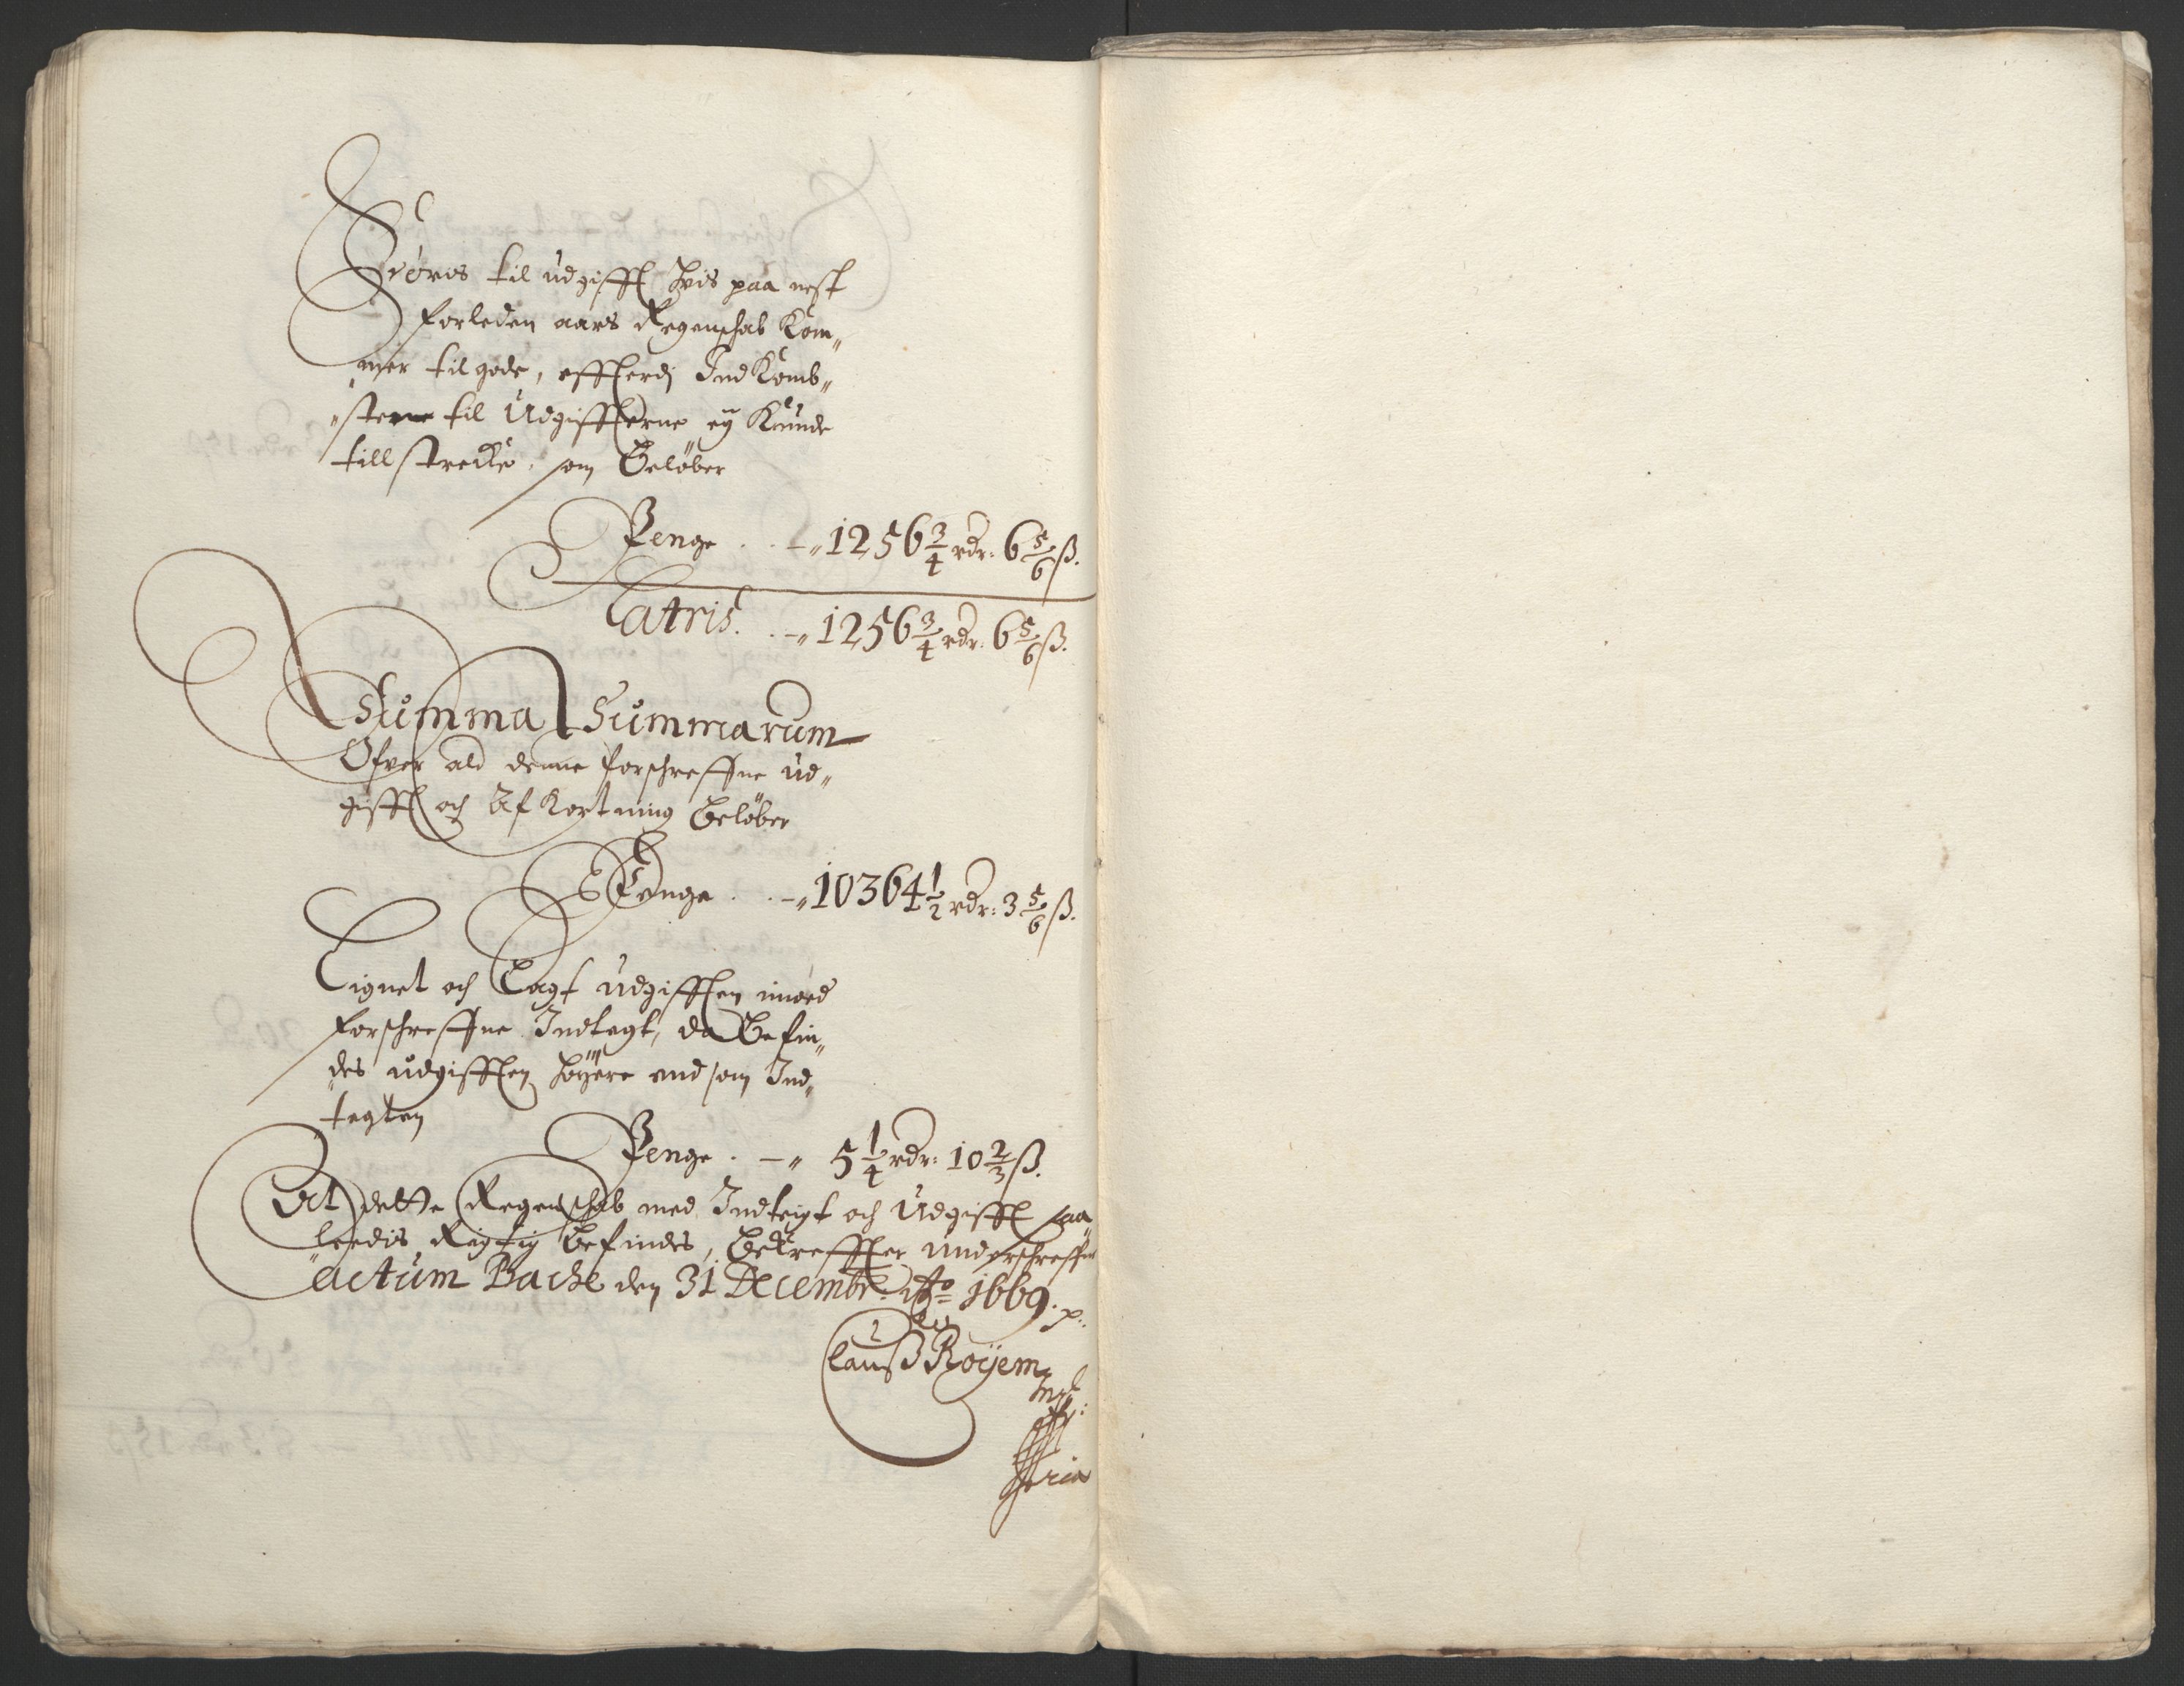 Føris til udgifft hvis paa nest
forleden aars Regenschab Kom„
mer til gode, effterdj Ind Komb„
„sterne til Udgiffterne eÿ Kunde
tillstrecke, som Beløber
Penge . . –„ 1256 3/4 rdr: 6 5/6 ß.
Latris. . –„ 1256 3/4 rdr: 6 5/6 ß.
Summa Summarum
Ofver ald denne forschreffne ud„
gifft och Af Kortning Beløber
Penge . . –„ 10364 1/2 rdr: 3 5/6 ß.
Lignet och Lagt udgifften imod
forschreffne Indtegt, da Befin„
des udgifften høyere end som Ind„
tegten
Penge . –„ 5 1/4 rdr: 10 2/3 ß.
At dette Regenschab med Indteigt och Udgifft saa
„leedis Rigtig Befindes, Bekreffter underschreffne
Actum Bache den 31 Decembr: Ao 1669. p:
Clauß Røÿem